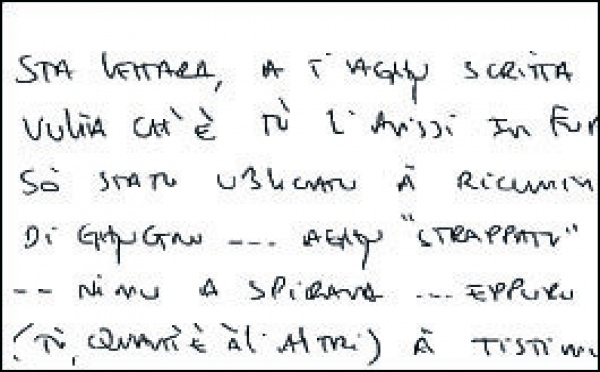 STA LETTARA, A T'AGHJU SCRITTA
VULIA CH'È TÙ L'AVISSI IN FUR
SÒ STATU UBLICATU À RICUMIN
DI GHJUGNU --- AGHJU "STRAPPATU"
-- NIMU A SPIRAVA ... EPPURU
(TÙ, QUANT'È À L'ALTRI) À TISTIM